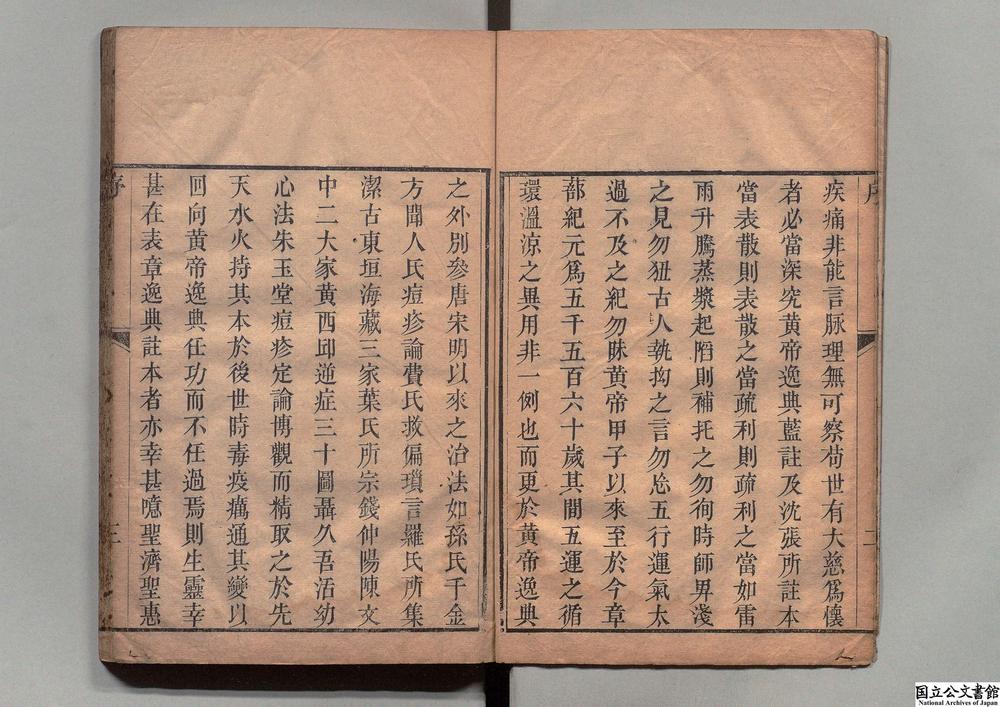 疾痛非能言脉理無可察苟世有大慈爲懷
者必當深究黄帝逸典藍註及沈張所註本
當表散則表散之當疏利則疏利之當如雷
雨升騰蒸漿起陷則補托之勿徇時師畀淺
之見勿狃古人執抝之言勿忿五行運氣太
過不及之紀勿眛黄帝甲子以來至於今章
蔀紀元爲五千五百六十歲其間五運之循
環溫涼之異用非一例也而更於黄帝逸典
序
二
之外別參唐宋明以來之治法如孫氏千金
方聞人氏痘疹論費氏救偏瑣言羅氏所集
潔古東垣海藏三家葉氏所宗錢仲陽陳文
中二大家黄西邱逆症三十圖聶久吾活幼
心法朱玉堂痘疹定論博觀而精取之於先
天水火持其本於後世時毒疫癘通其變以
回向黄帝逸典任功而不任過焉則生靈幸
甚在表章逸典註本者亦幸甚噫聖濟聖惠
序
三
国立公文書館
National Archives of Japan